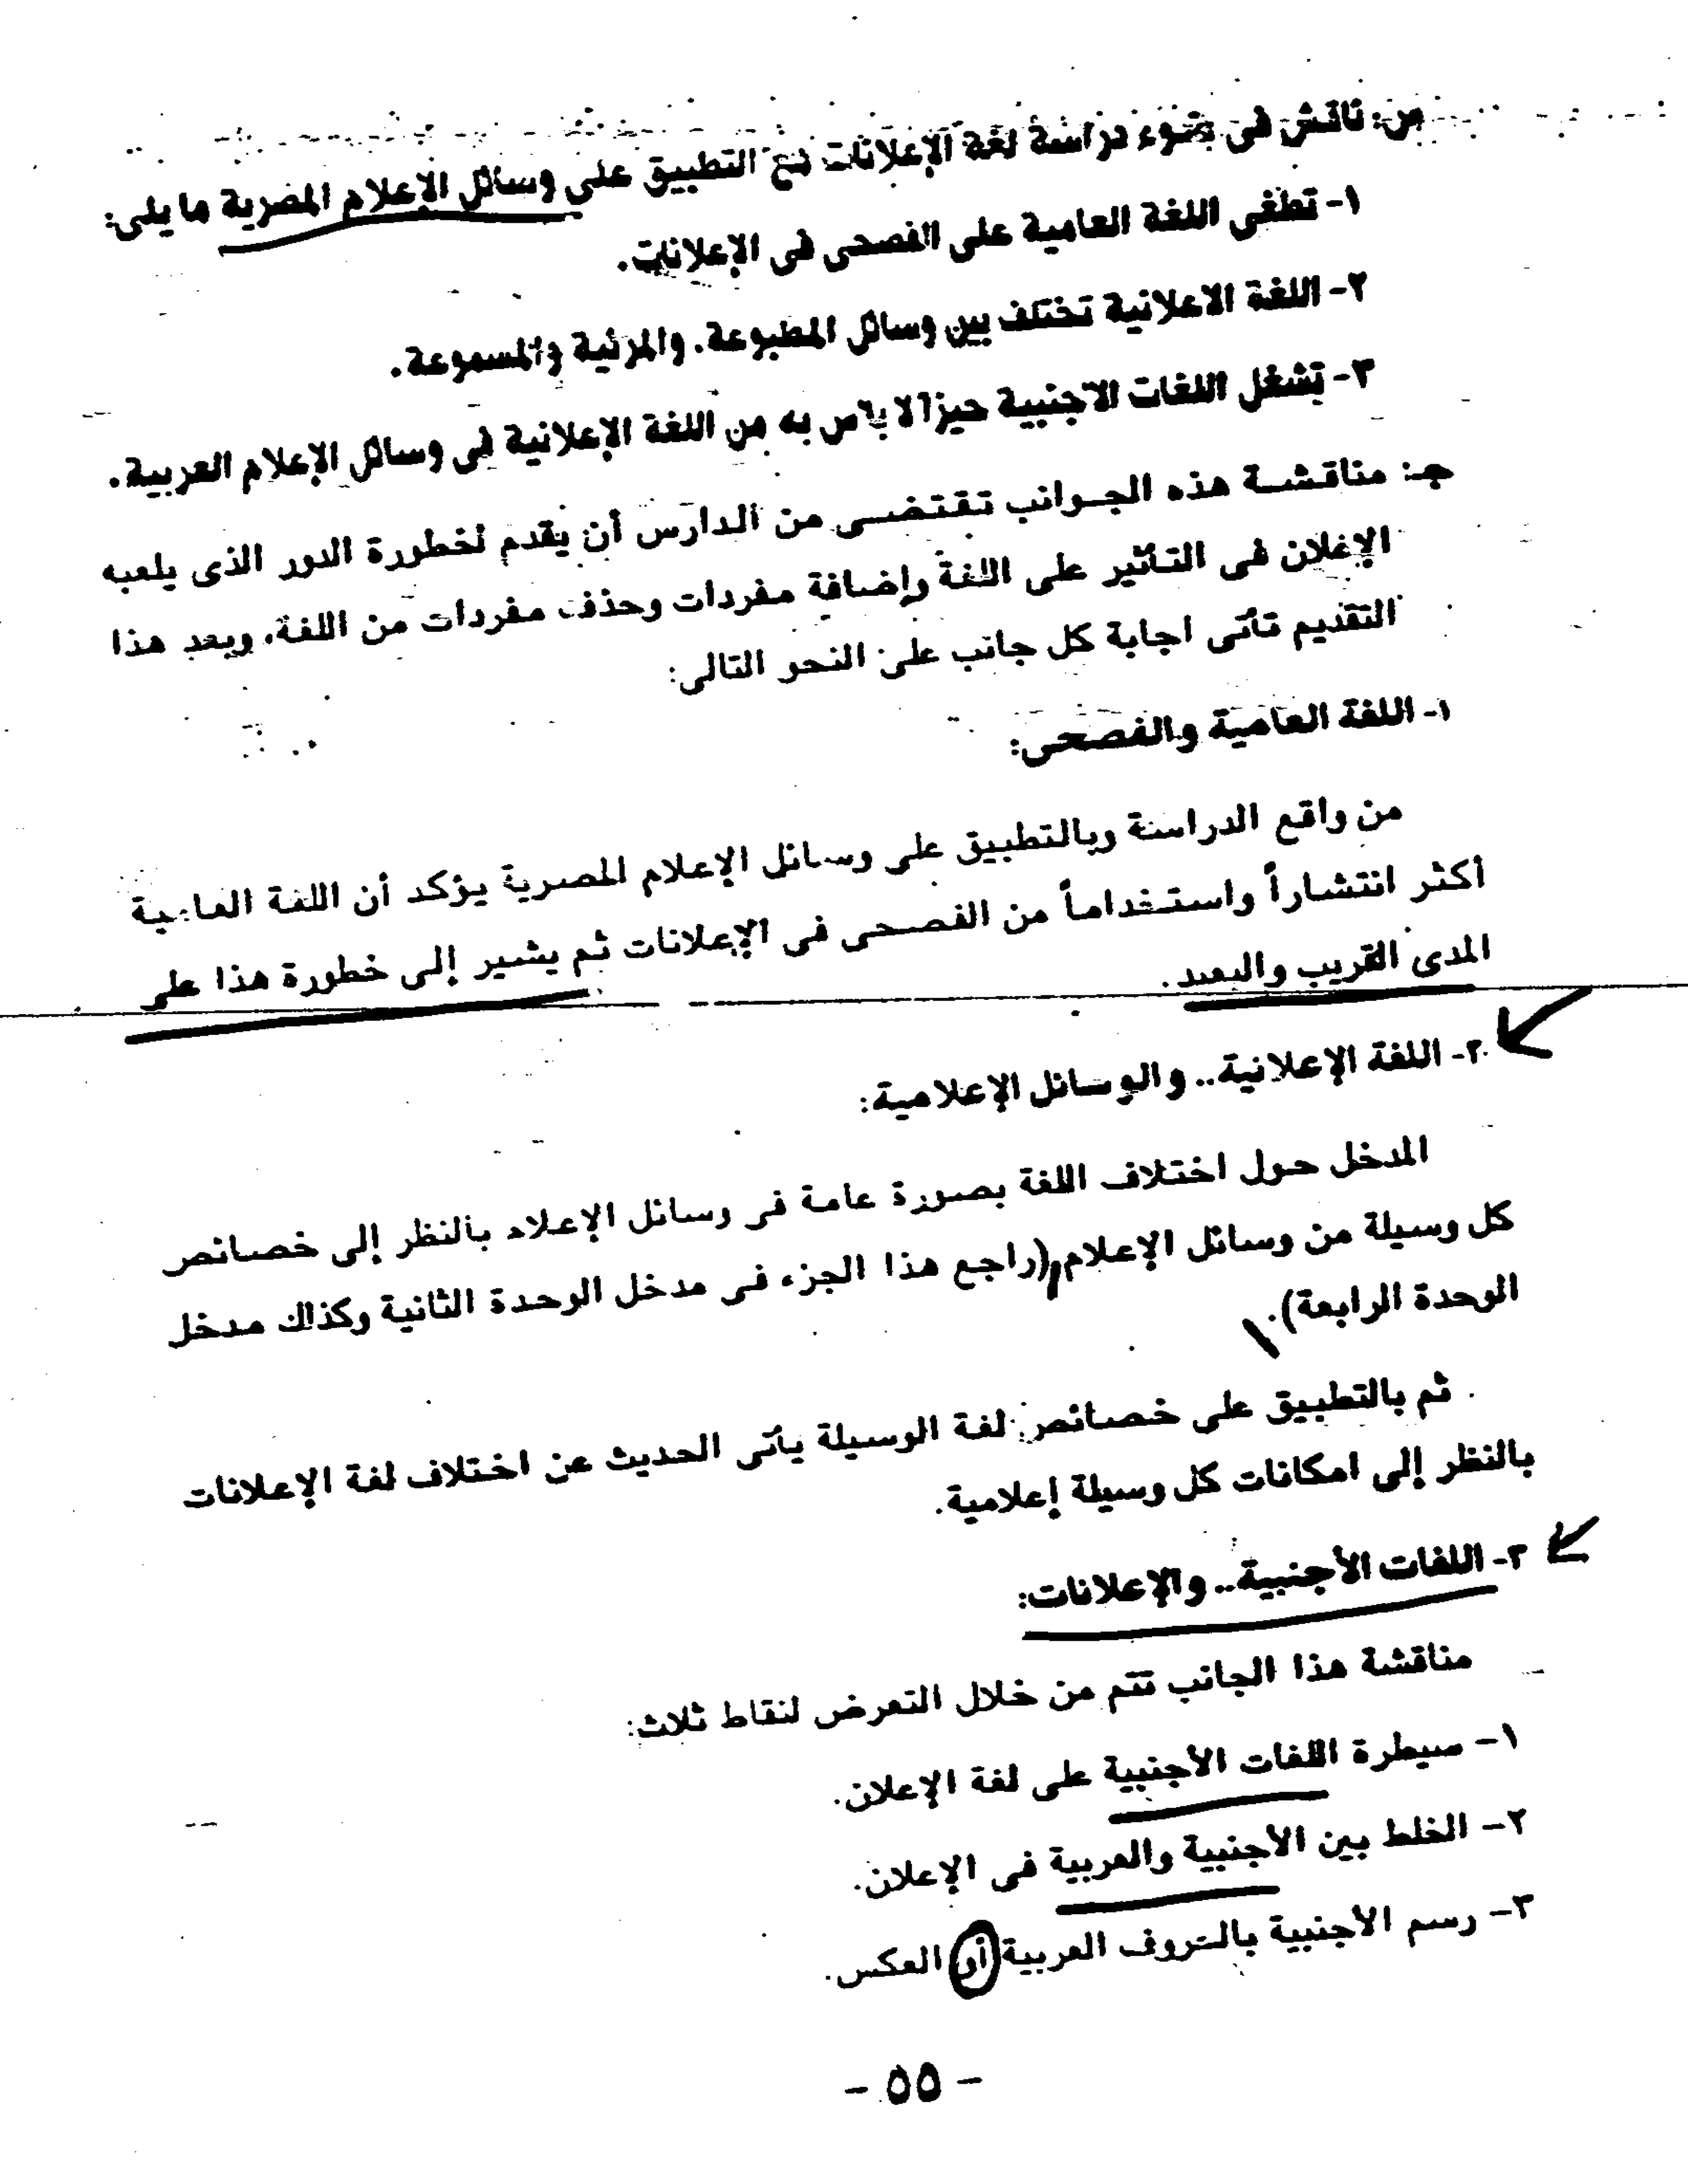 س: ناقش فى ضوء دراسة لغة الإعلانات مع التطبيق على وسائل الإعلام المصرية ما يلى:
١- تطغى اللغة العامية على الفصحى فى الإعلانات.
٢- اللغة الاعلانية تختلف بين وسائل المطبوعة. والمرئية والمسموعة.
٣- تشغل اللغات الأجنبية حيزاً لا بأس به من اللغة الإعلانية فى وسائل الإعلام العربية.
جـ: مناقشة هذه الجوانب تقتضى من الدارس أن يقدم لخطورة الدور الذى يلعبه
الإعلان فى التأثير على اللغة وإضافة مفردات وحذف مفردات من اللغة، وبعد هذا
التقديم تأتى اجابة كل جانب على النحو التالى:
١- اللغة العامية والفصحى:
من واقع الدراسة وبالتطبيق على وسائل الإعلام المصرية يؤكد أن اللغة العامية
أكثر انتشاراً واستخداماً من الفصحى فى الإعلانات ثم يشير إلى خطورة هذا على
المدى القريب والبعيد.
٢- اللغة الإعلانية.. والوسائل الإعلامية:
المدخل حول اختلاف اللغة بصورة عامة فى وسائل الإعلام بالنظر إلى خصائص
كل وسيلة من وسائل الإعلام (راجع هذا الجزء فى مدخل الوحدة الثانية وكذلك مدخل
الوحدة الرابعة).
ثم بالتطبيق على خصائص لغة الوسيلة يأتى الحديث عن اختلاف لغة الإعلانات
بالنظر إلى امكانات كل وسيلة إعلامية.
٣- اللغات الأجنبية.. والإعلانات:
مناقشة هذا الجانب تتم من خلال التعرض لنقاط ثلاث:
١- سيطرة اللغات الأجنبية على لغة الإعلان.
٢- الخلط بين الأجنبية والعربية فى الإعلان.
٣- رسم الأجنبية بالحروف العربية أو العكس.
- ٥٥ -